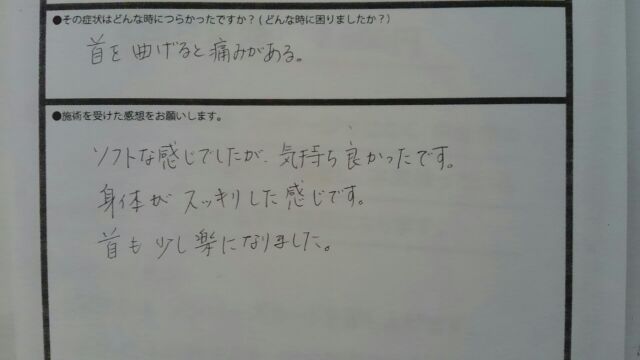 ●その症状はどんな時につらかったですか？(どんな時に困りましたか？)
首を曲げると痛みがある。
●施術を受けた感想をお願いします。
ソフトな感じでしたが、気持ち良かったです。
身体がスッキリした感じです。
首も少し楽になりました。